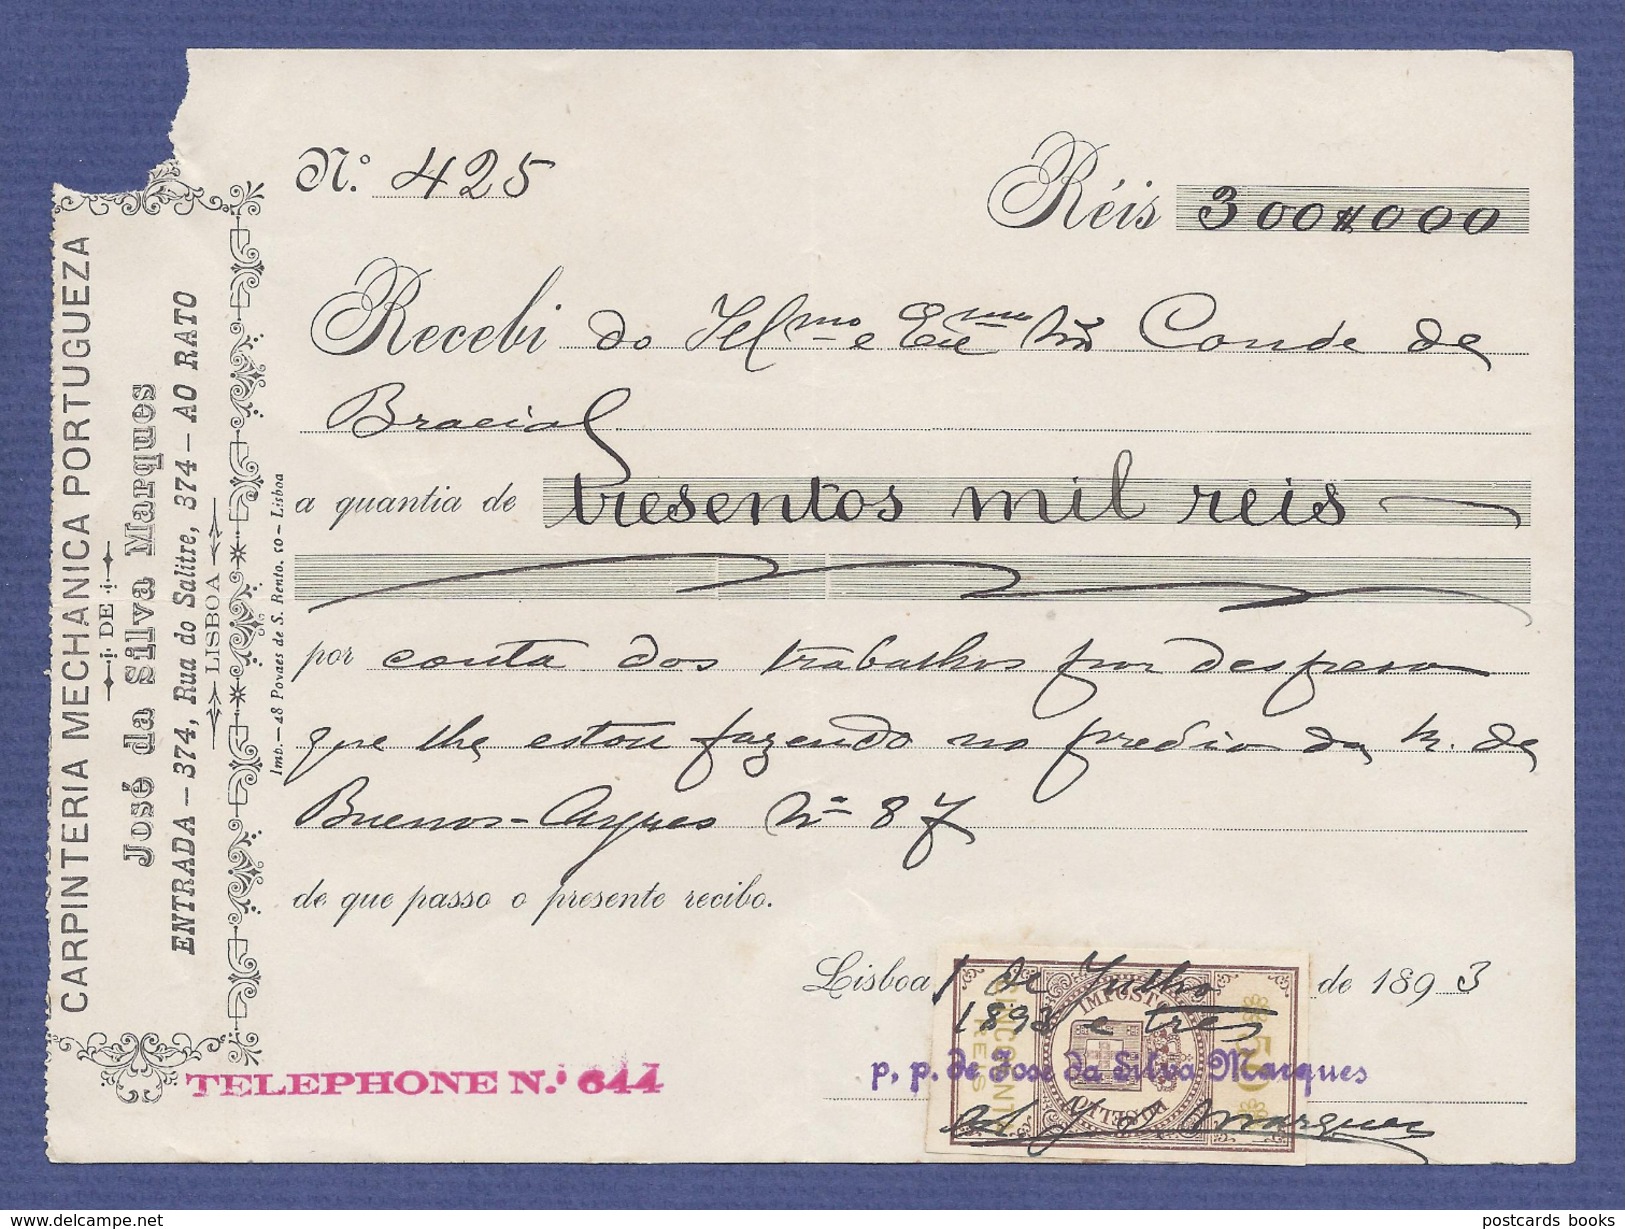 CARPINTERIA MECHANICA PORTUGUEZA
DE
José da Silva Marques
ENTRADA — 374, Rua do Salitre, 374 — AO RATO
LISBOA
Imp. — 48 Povaes de S. Bento. 50 — Lisboa
N.º 425
Réis 300$000
Recebi do Illmo e Exmo Snr Conde de
Bracial
a quantia de tresentos mil reis
por conta dos trabalhos por despesa
que lhe estou fazendo no predio da R. de
Buenos-Ayres Nº 87
de que passo o presente recibo.
Lisboa 1 de Julho de 1893
1893 e tres
IMPOSTO
DO SELLO
CINCOENTA
REIS
50
p. p. de José da Silva Marques
Marques
TELEPHONE N.º 644
postcards books